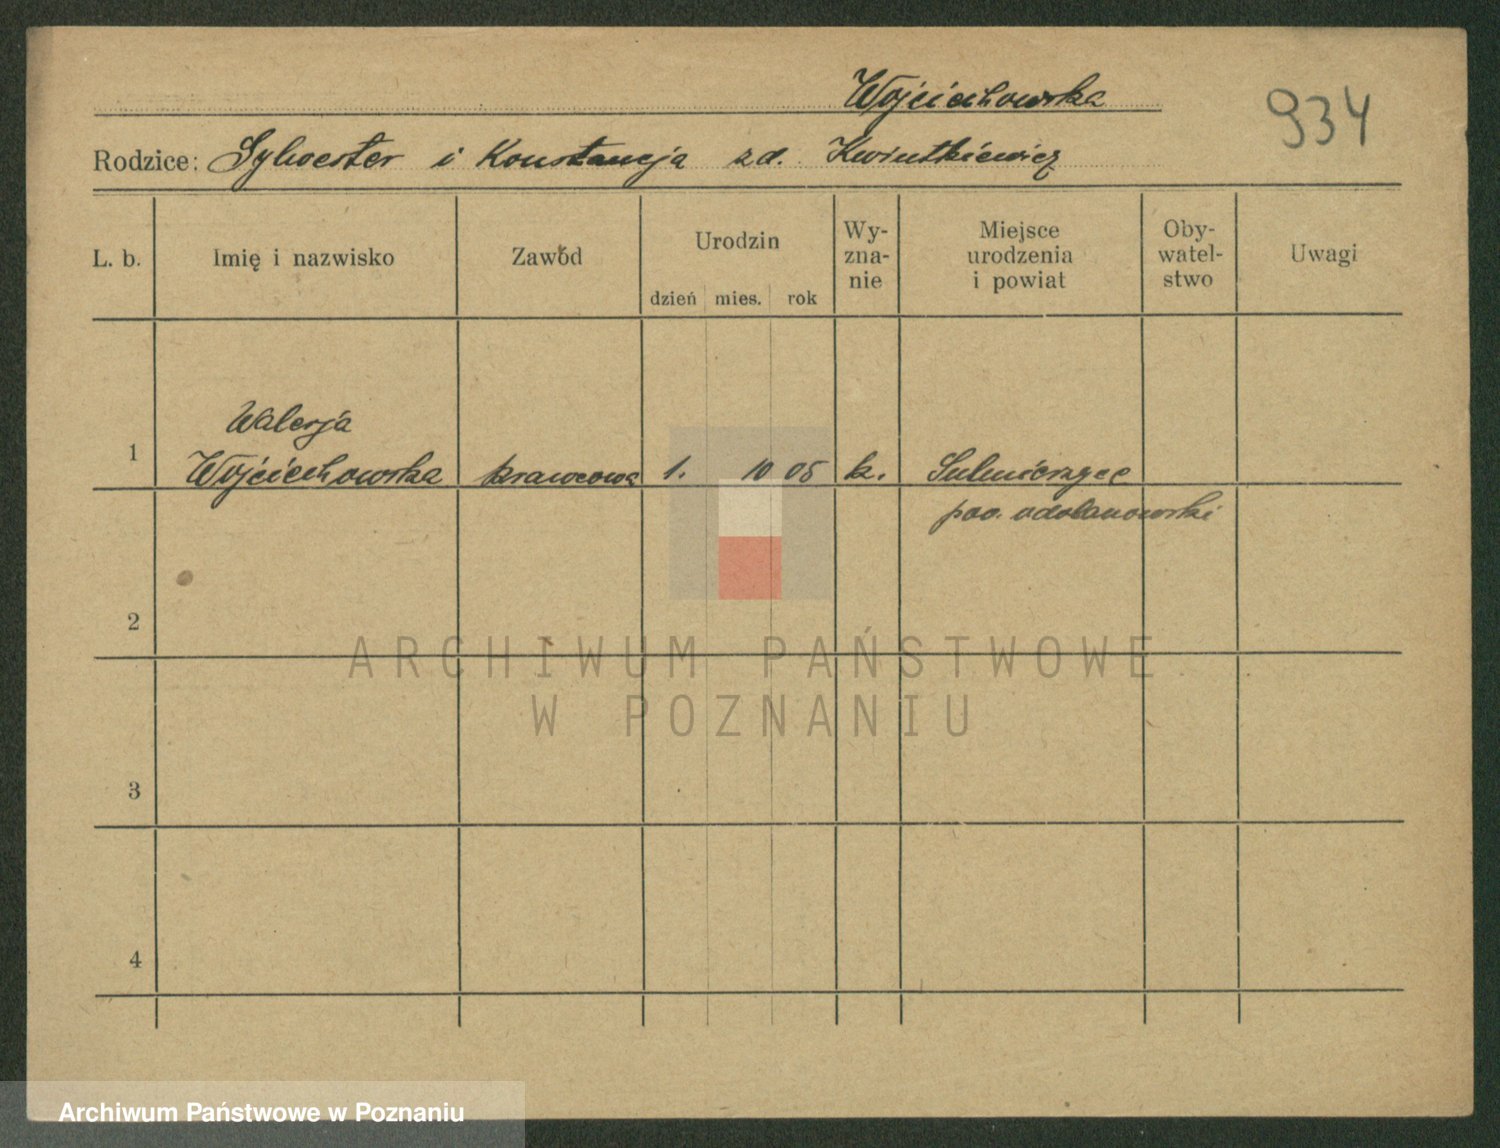 Wojciechowska
934
Rodzice: Sylwester i Konstancja zd. Kwiutkiewicz
L. b.
Imię i nazwisko
Zawód
Urodzin
dzień mies. rok
Wy-
zna-
nie
Miejsce
urodzenia
i powiat
Oby-
watel-
stwo
Uwagi
Walerja
1 Wojciechowska krawcowa 1. 10 05 k. Sulmierzyce
pow. odolanowski
2
ARCHIWUM PAŃSTWOWE
W POZNANIU
3
4
Archiwum Państwowe w Poznaniu